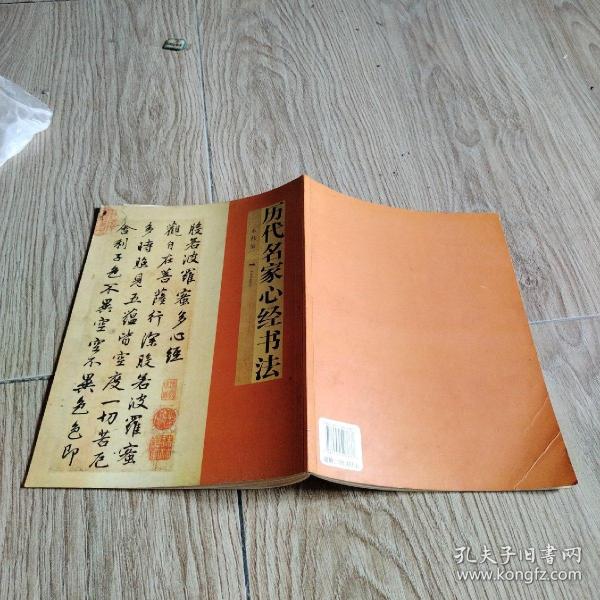 历代名家心经书法
般若波罗蜜多心经
觀自在菩薩行深般若波羅蜜
多時照見五蕴皆空度一切苦厄
舍利子色不異空空不異色色即
孔夫子旧书网
www.kongfz.com